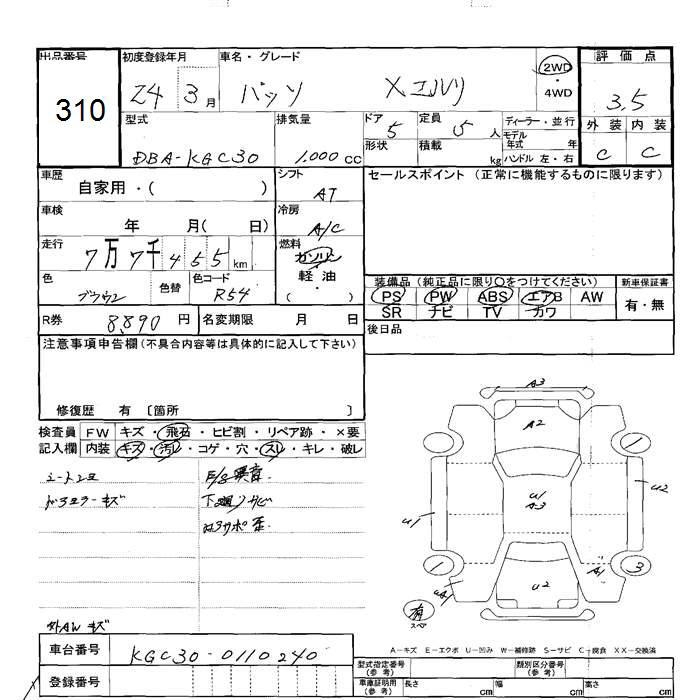 出品番号 初度登録年月 車名・グレード 2WD 評価点
310 24 3月 パッソ X ・ 4WD 3.5
型式 排気量 ドア 5 定員 5人 ディーラー・並行 外装 内装
DBA-KGC30 1,000cc 形状 積載 kg モデル年式 年 ハンドル 左・右 C C
車歴 自家用・( ) シフト AT セールスポイント (正常に機能するものに限ります)
車検 年 月( 日) 冷房 A/C
走行 7万7千455km 燃料 ガソリン
軽・油
( )
色 ブラウン 色替 色コード R54
装備品 (純正品に限り○をつけてください) 新車保証書
PS PW ABS エアB AW 有・無
SR ナビ TV カワ
R券 8,890円 名変期限 月 日 後日品
注意事項申告欄(不具合内容等は具体的に記入して下さい)
修復歴 有 〔箇所 〕
検査員 FW キズ・飛石・ヒビ割・リペア跡・×要
記入欄 内装 キズ・汚レ・コゲ・穴・スレ・キレ・破レ
異音
下廻りサビ
キズ
外AWキズ
A3
A2
U1
A3
U2
U1
U2
A1
1
1
3
有
スペア
A-キズ E-エクボ U-凹み W-補修跡 S-サビ C-腐食 XX-交換済
車台番号 KGC30-0110240
登録番号
型式指定番号(参考) 類別区分番号(参考)
車庫証明用(参考) 長さ cm 幅 cm 高さ cm